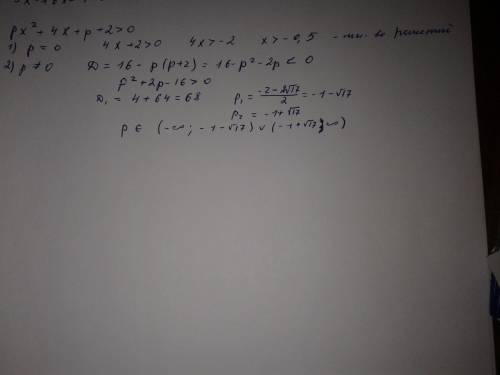 px² + 4x + p + 2 > 0
1) p = 0 4x + 2 > 0 4x > -2 x > -0,5 - мн. во решений
2) p ≠ 0 D = 16 - p(p+2) = 16 - p² - 2p < 0
p² + 2p - 16 > 0
D₁ = 4 + 64 = 68 p₁ = (-2 - 2√17)/2 = -1 - √17
p₂ = -1 + √17
p ∈ (-∞; -1 - √17) ∪ (-1 + √17; ∞)